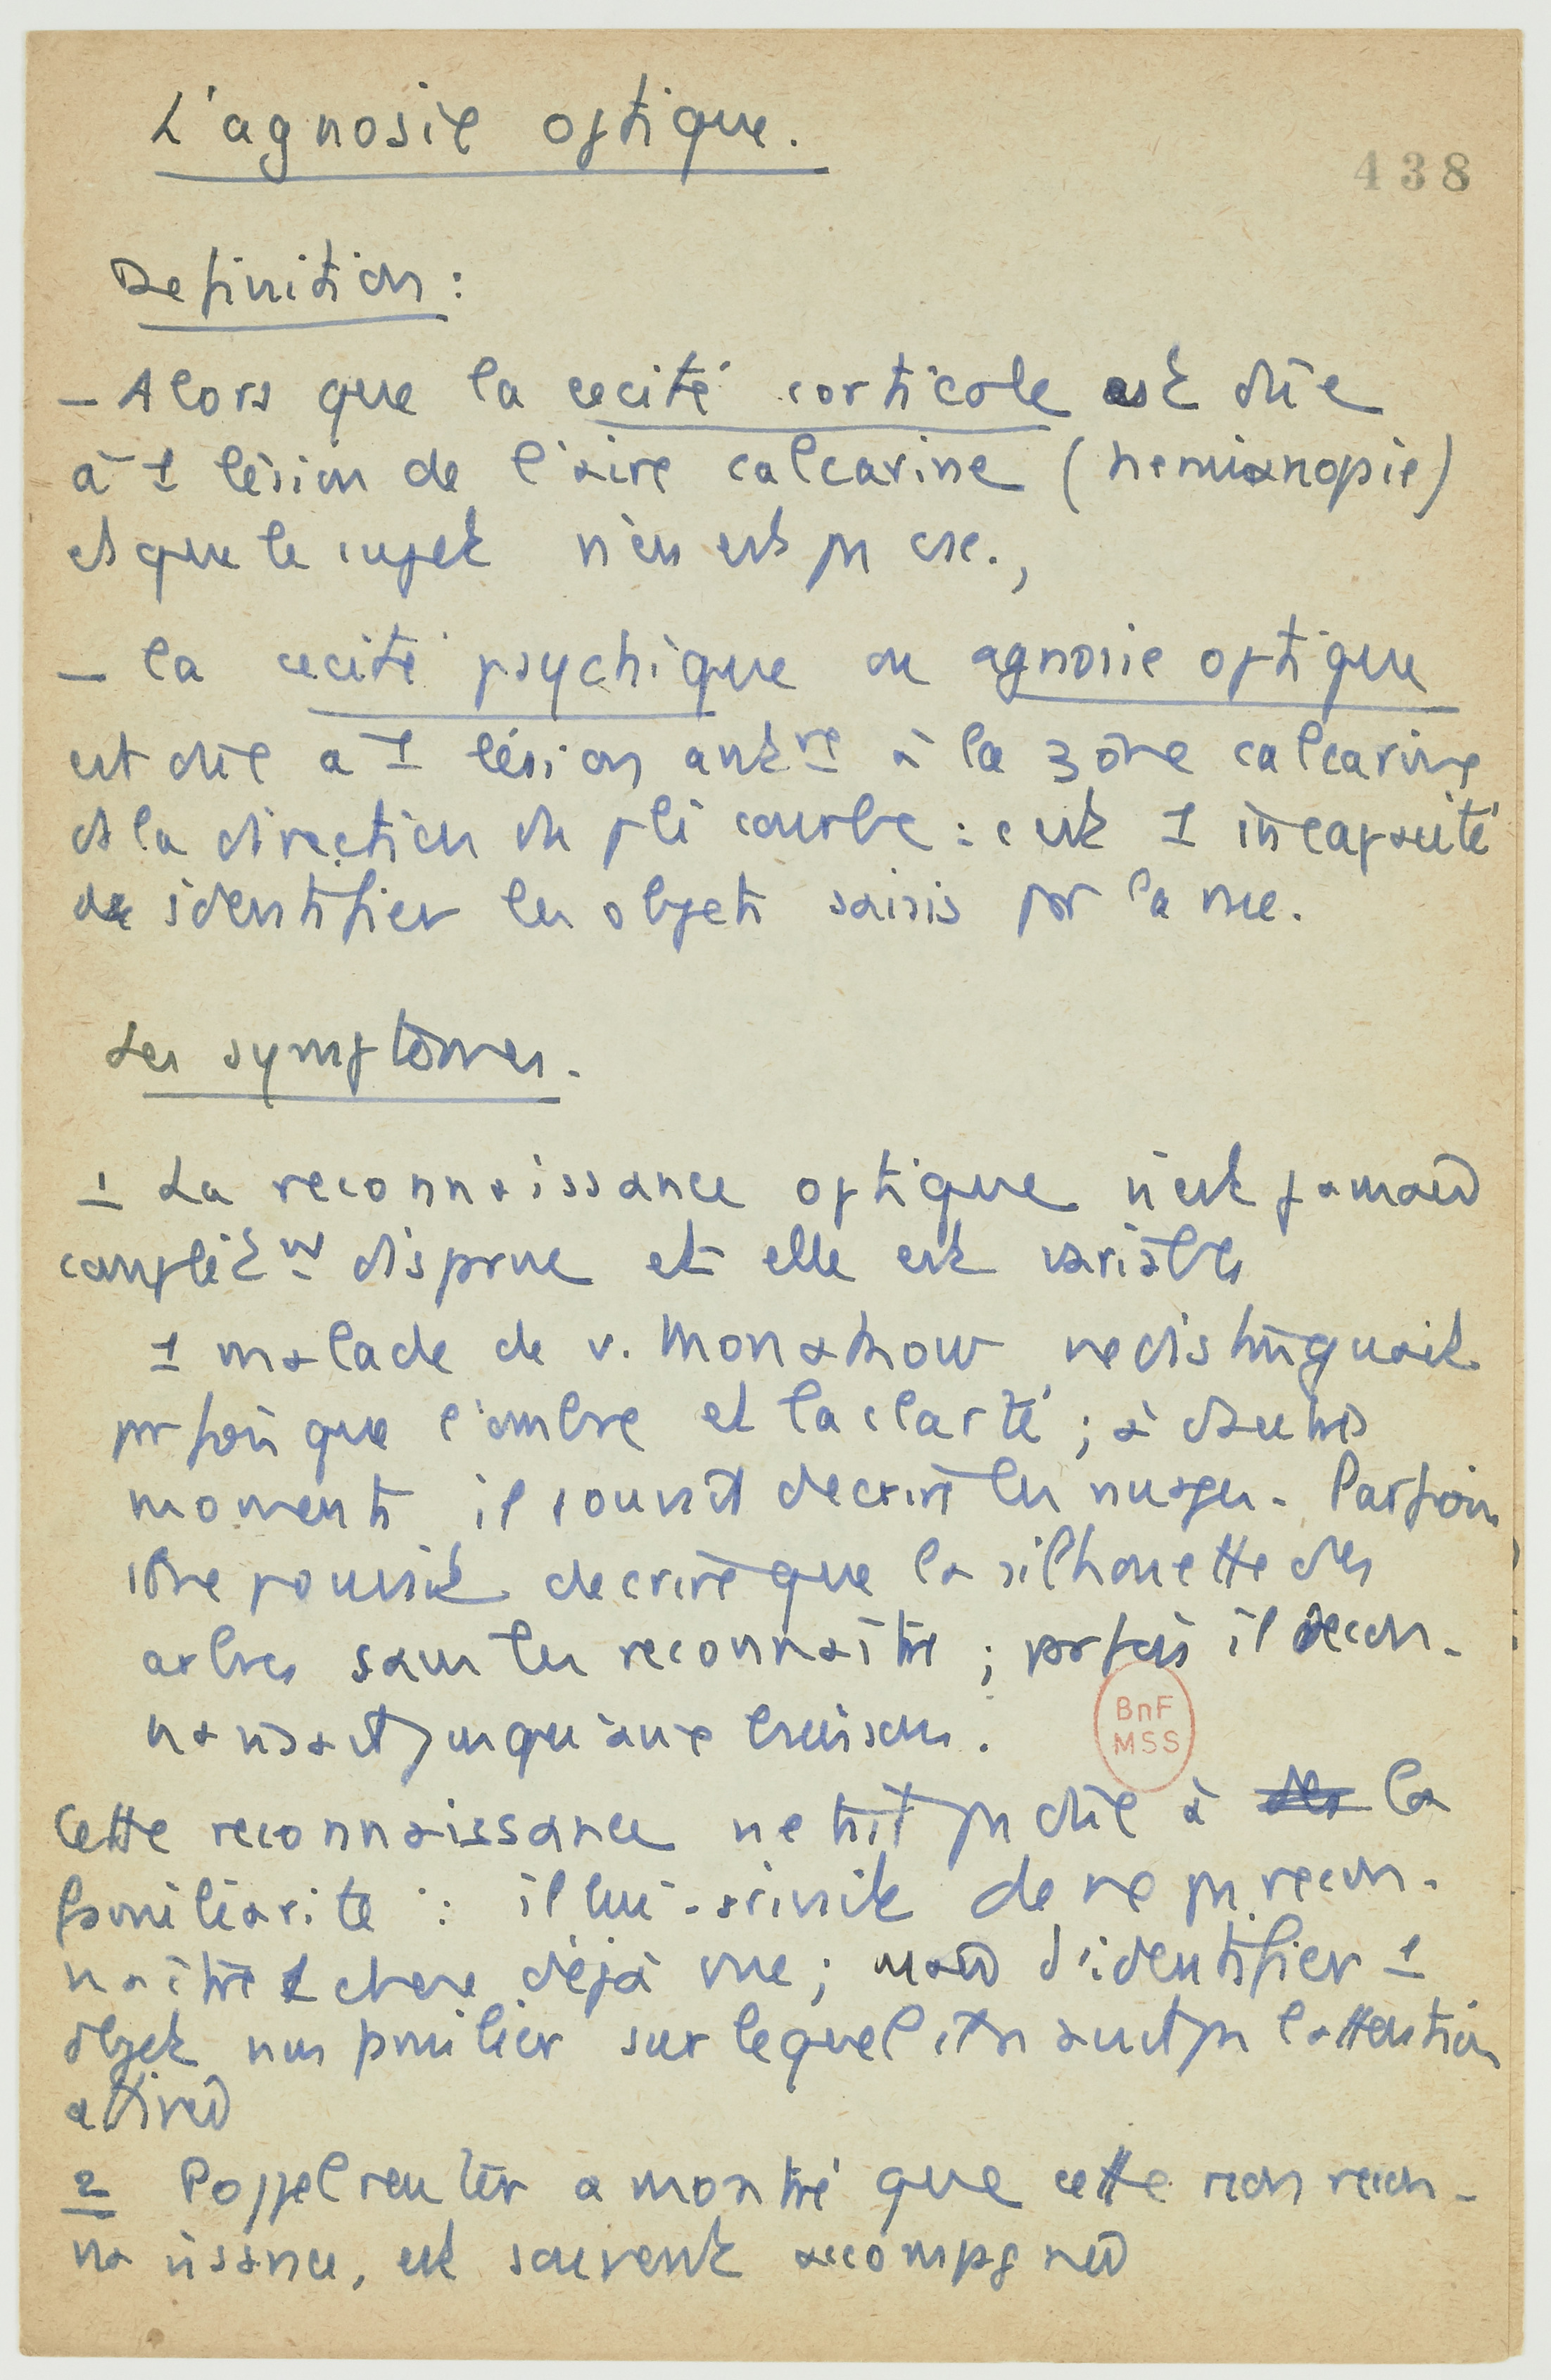 L'agnosie optique.
438
Definition :
– Alors que la cecité corticale est dûe
à 1 lésion de l'aire calcarine (hemianopie)
et que le sujet n'en est pas csc.,
– la cecité psychique ou agnosie optique
est dûe a 1 lésion antre à la zône calcarine
et la direction du pli courbe : c'est 1 incapacité
de identifier les objets saisis par la vue.
Les symptômes.
1 La reconnaissance optique n'est jamais
complètnt disparue et elle est variable
1 malade de v. Monakow ne distinguait
parfois que l'ombre et la clarté ; à d'autres
moments il pouvait decrire les nuages. Parfois
il ne pouvait decrire que la silhouette des
arbres sans les reconnaître ; parfois il recon-
naissait jusqu'aux buissons.
Cette reconnaissance ne serait pas dûe à la
familiarité : il lui arrivait de ne pas recon-
naître 1 chose déjà vue ; mais d'identifier 1
objet non familier sur lequel on avait pas l'attention
attirée
2 Poppelreuter a montré que cette non recon-
naissance, est souvent accompagnée